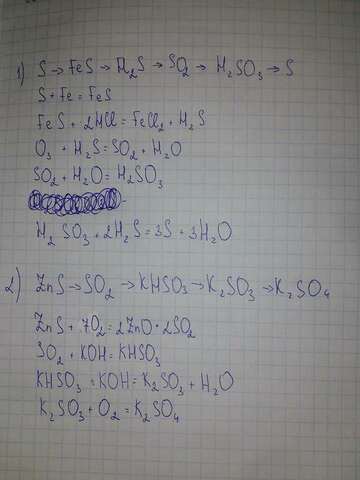 1) S → FeS → H₂S → SO₂ → H₂SO₃ → S
S + Fe = FeS
FeS + 2HCl = FeCl₂ + H₂S
O₃ + H₂S = SO₂ + H₂O
SO₂ + H₂O = H₂SO₃
H₂SO₃ + 2H₂S = 3S + 3H₂O
2) ZnS → SO₂ → KHSO₃ → K₂SO₃ → K₂SO₄
ZnS + 7O₂ = 2ZnO · 2SO₂
SO₂ + KOH = KHSO₃
KHSO₃ = KOH = K₂SO₃ + H₂O
K₂SO₃ + O₂ = K₂SO₄